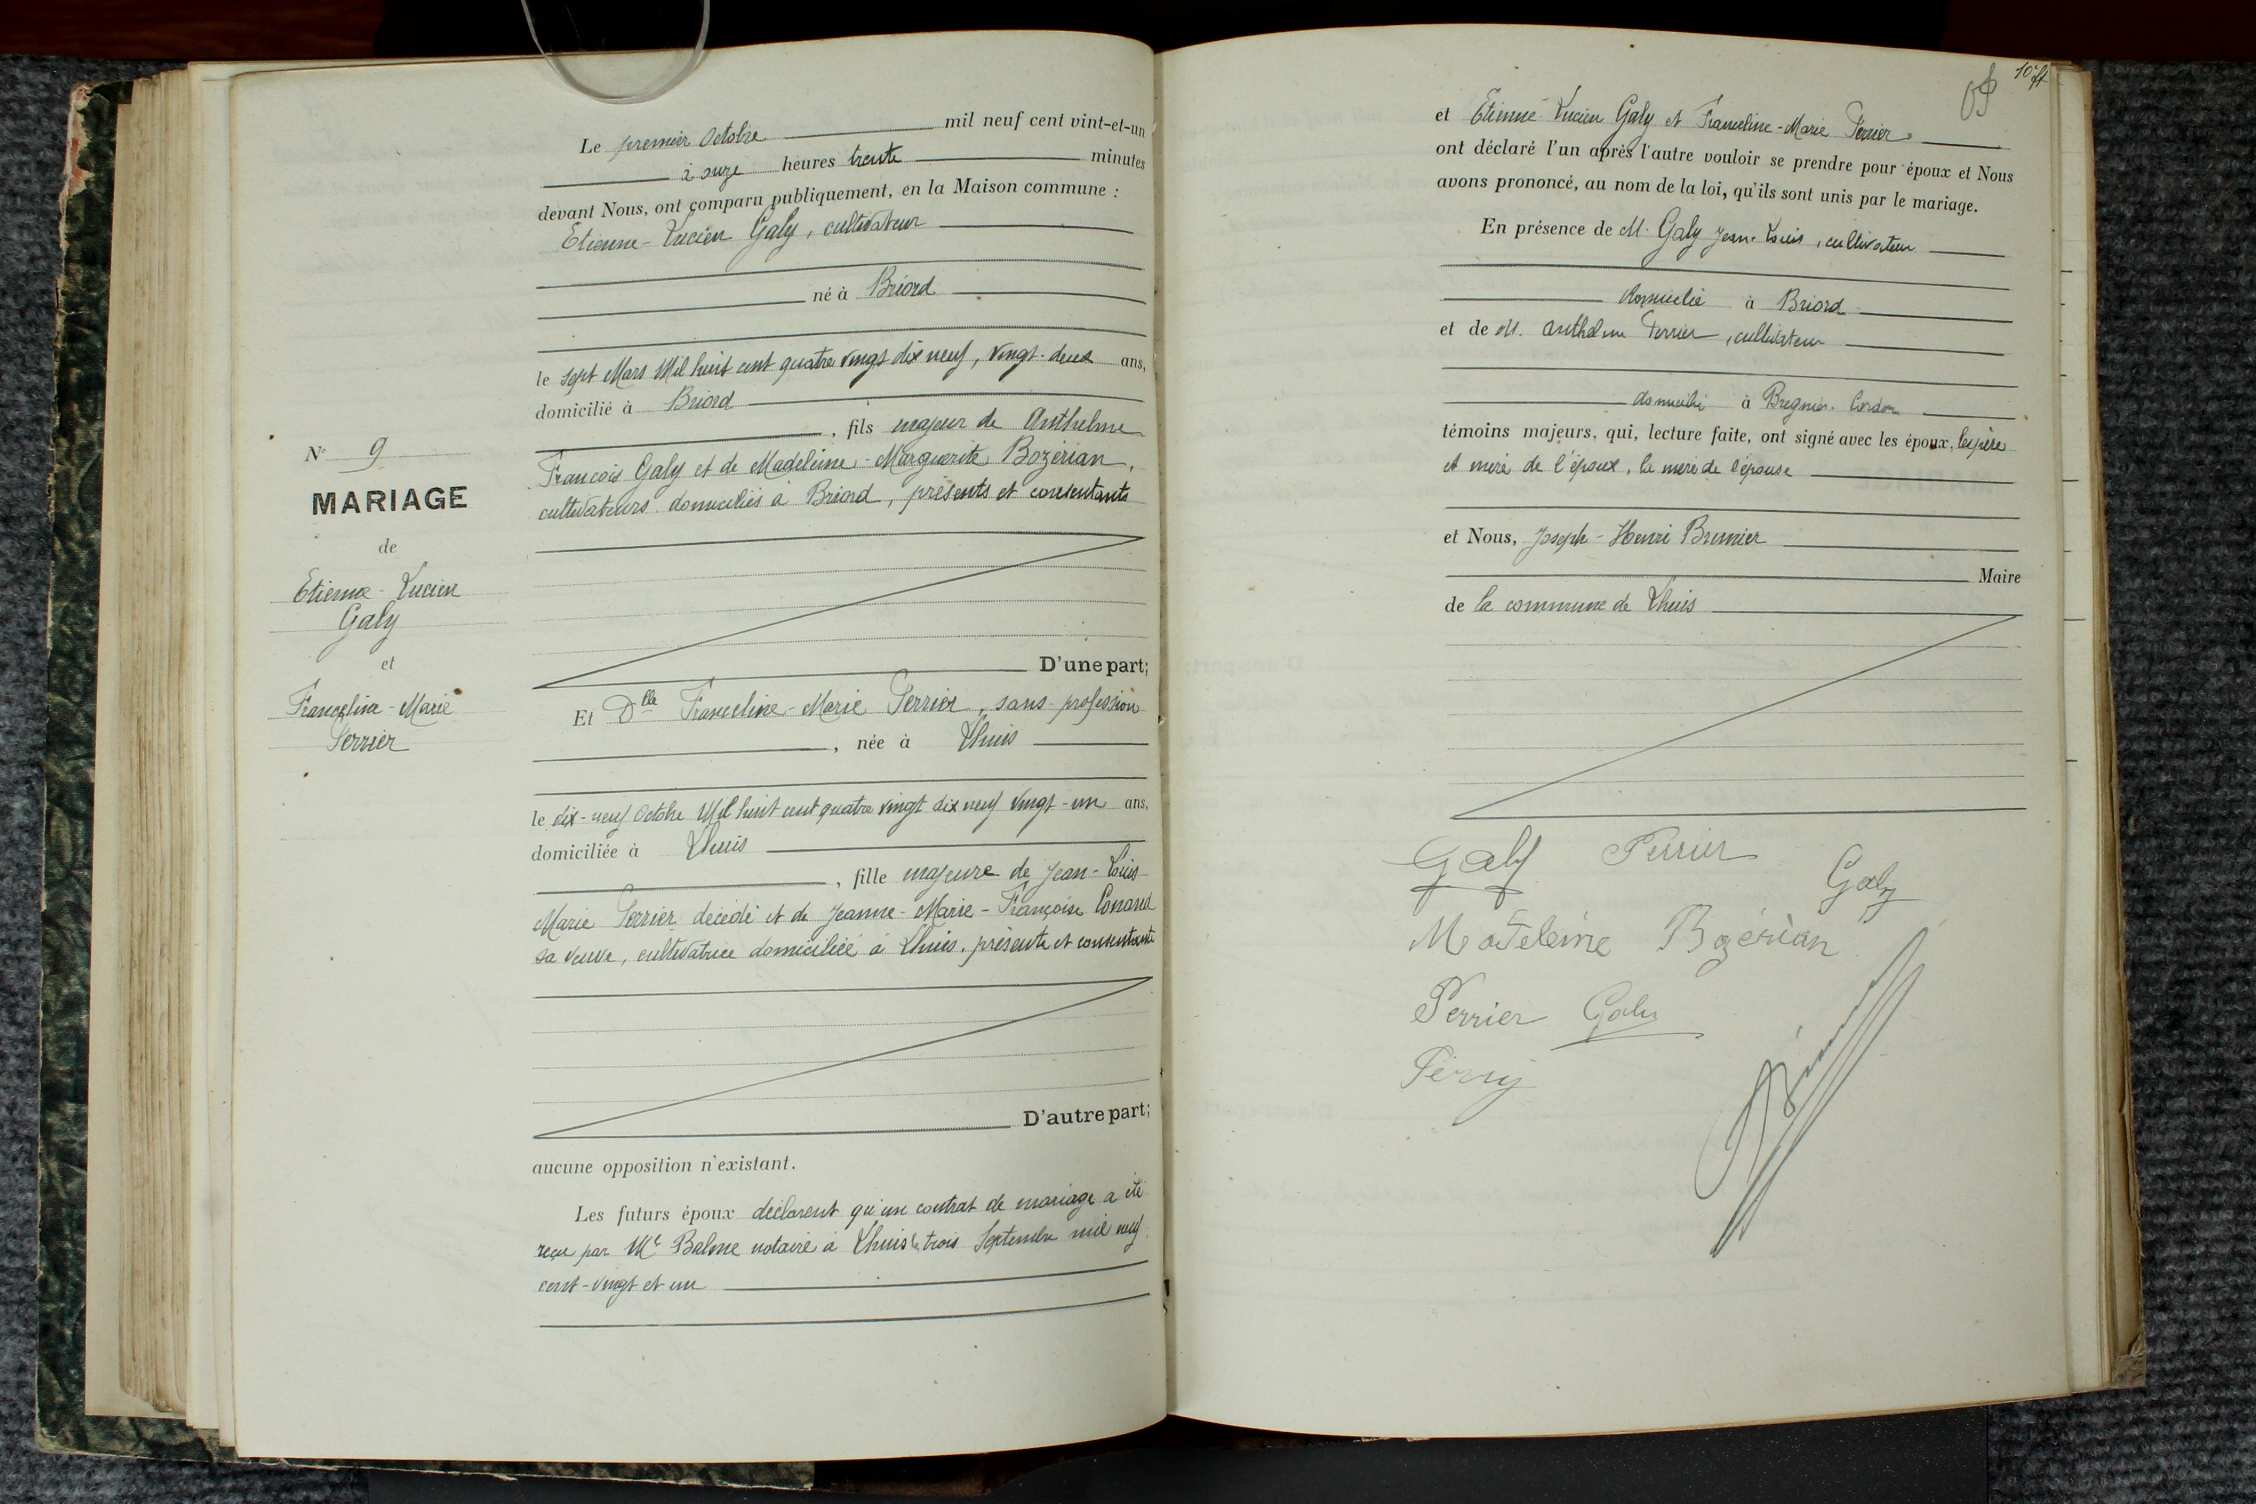 Le premier Octobre mil neuf cent vint-et-un
à onze heures trente minutes
devant Nous, ont comparu publiquement, en la Maison commune :
Etienne-Lucien Galy, cultivateur
né à Briord
le sept Mars Mil huit cent quatre vingt dix neuf, vingt-deux ans,
domicilié à Briord
, fils majeur de Anthelme
François Galy et de Madeleine-Marguerite Bozérian,
cultivateurs domiciliés à Briord, présents et consentants
D'une part;
Et Dlle Franceline-Marie Perrier, sans profession
, née à Lhuis
le dix-neuf Octobre Mil huit cent quatre vingt dix neuf vingt-un ans,
domiciliée à Lhuis
, fille majeure de Jean-Louis
Marie Perrier décédé et de Jeanne-Marie-Françoise Conand
sa veuve, cultivatrice domiciliée à Lhuis, présente et consentante
D'autre part;
aucune opposition n'existant.
Les futurs époux déclarent qu'un contrat de mariage a été
reçu par Me Balme notaire à Lhuis le trois Septembre mil neuf
cent-vingt et un
No 9
MARIAGE
de
Etienne-Lucien
Galy
et
Franceline-Marie
Perrier
10
et Etienne-Lucien Galy et Franceline-Marie Perrier
ont déclaré l'un après l'autre vouloir se prendre pour époux et Nous
avons prononcé, au nom de la loi, qu'ils sont unis par le mariage.
En présence de M. Galy Jean-Louis, cultivateur
domicilié à Briord
et de M. Anthelme Perrier, cultivateur
domicilié à Bregnier-Cordon
témoins majeurs, qui, lecture faite, ont signé avec les époux, les père
et mère de l'époux, la mère de l'épouse
et Nous, Joseph-Henri Brunier
Maire
de la commune de Lhuis
Galy Perrier Galy
Madeleine Bozérian
Perrier Galy